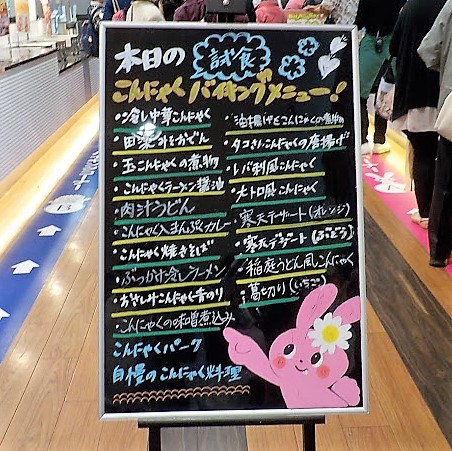 本日の 試食
こんにゃく バイキングメニュー!
・冷し中華こんにゃく
・田楽みそおでん
・玉こんにゃくの煮物
・こんにゃくラーメン醤油
・肉汁うどん
・こんにゃく入まんぷくカレー
・こんにゃく焼きそば
・ぶっかけ冷しラーメン
・おさしみこんにゃく青のり
・こんにゃくの味噌煮込み
こんにゃくパーク
自慢のこんにゃく料理
・油揚げとこんにゃくの煮物
・タコさんこんにゃくの唐揚げ
・レバ刺風こんにゃく
・大トロ風こんにゃく
・寒天デザート(オレンジ)
・寒天デザート(ぶどう)
・稲庭うどん風こんにゃく
・葛切り(いちご)